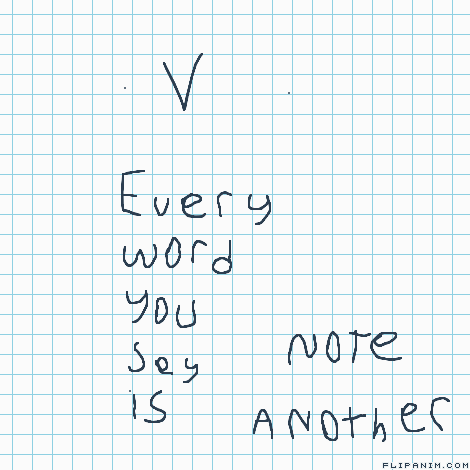 V
Every
word
you
say
is
NOTE
ANOTher
FLIPANIM.COM